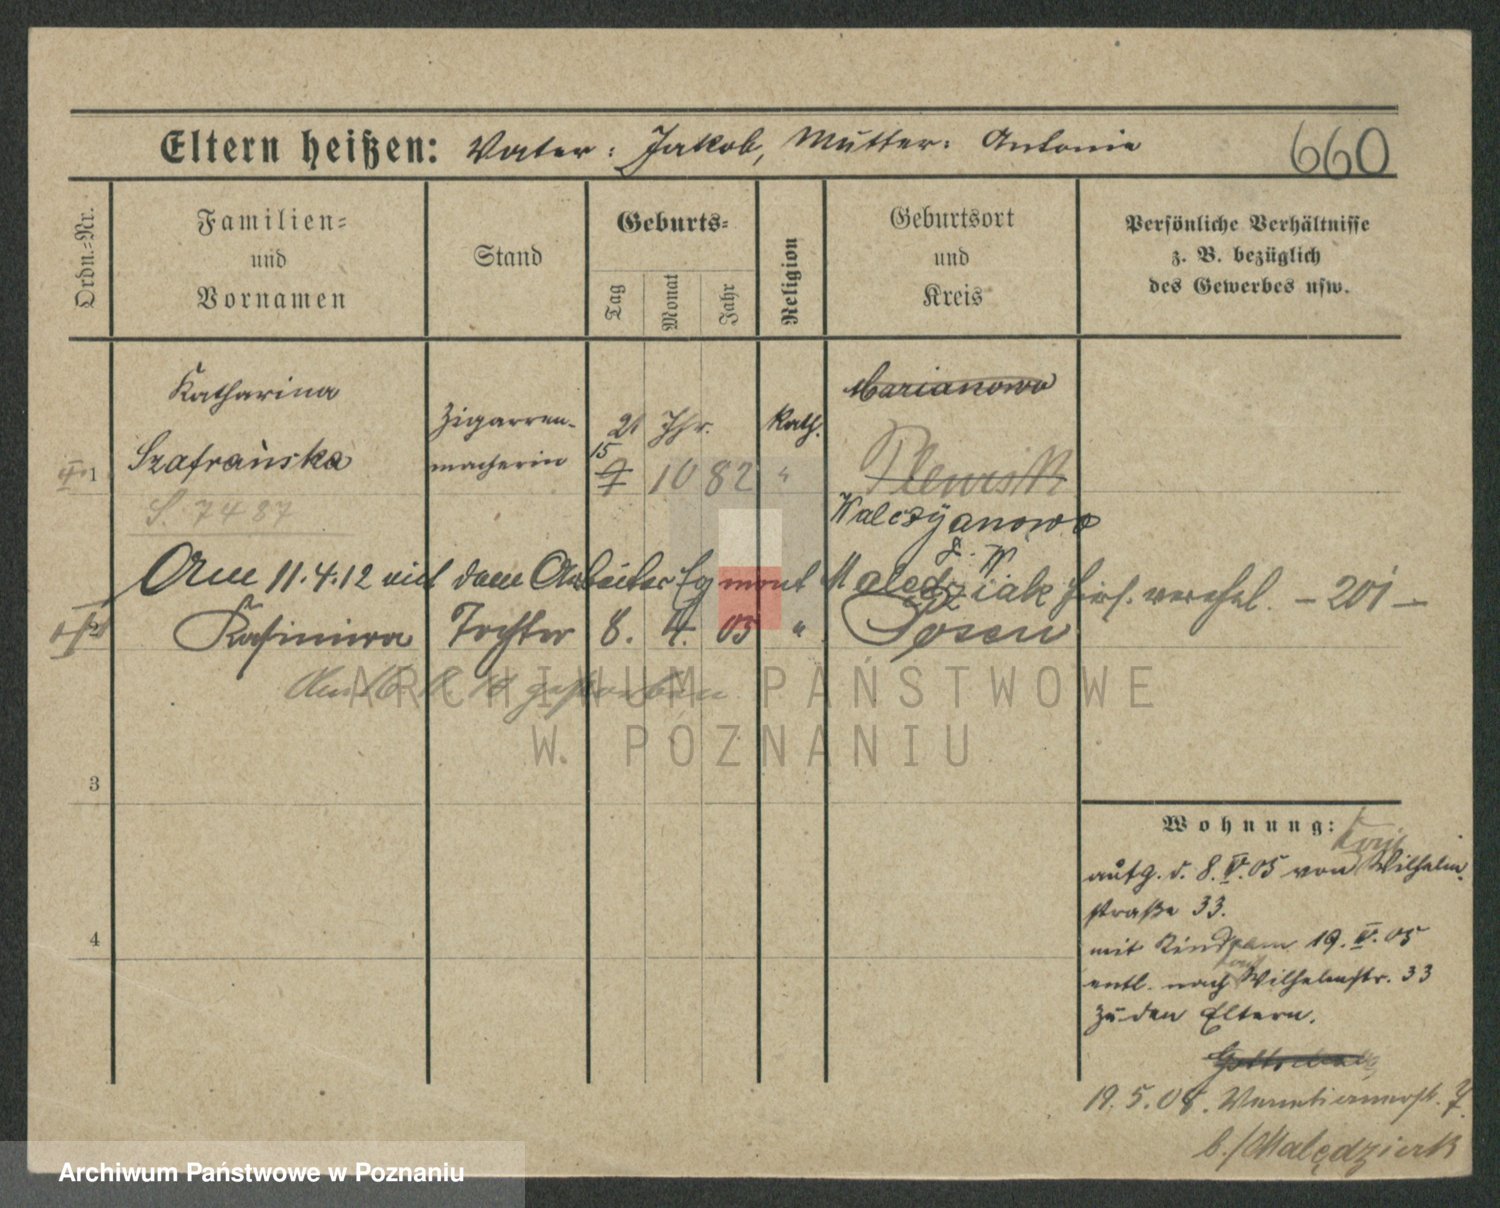 Eltern heißen: Vater: Jakob, Mutter: Antonie
660
Ordn.=Nr.
Familien=
und
Vornamen
Stand
Geburts=
Tag
Monat
Jahr
Religion
Geburtsort
und
Kreis
Persönliche Verhältnisse
z. B. bezüglich
des Gewerbes usw.
1
Katharina
Szafrańska
S. 7487
Zigarren-
macherin
21 Jhr.
15
7
10 82
kath.
"
Marianowo
Plewisk
Walczyanowo
Am 11.4.12 mit dem Arbeiter Egmont Maledziak hier verehel. – 201 –
2
Kasimira
Tochter
8. 4. 05
"
Posen
Am 16. gestorben
3
4
Wohnung:
König
aufg. d. 8.IV.05 von Wilhelm-
straße 33.
mit Kind am 19. IV. 05
entl. nach Wilhelmstr. 33
zu den Eltern.
19.5.08. Venetianerstr. 7
b./Malędziak
ARCHIWUM PAŃSTWOWE
W POZNANIU
Archiwum Państwowe w Poznaniu